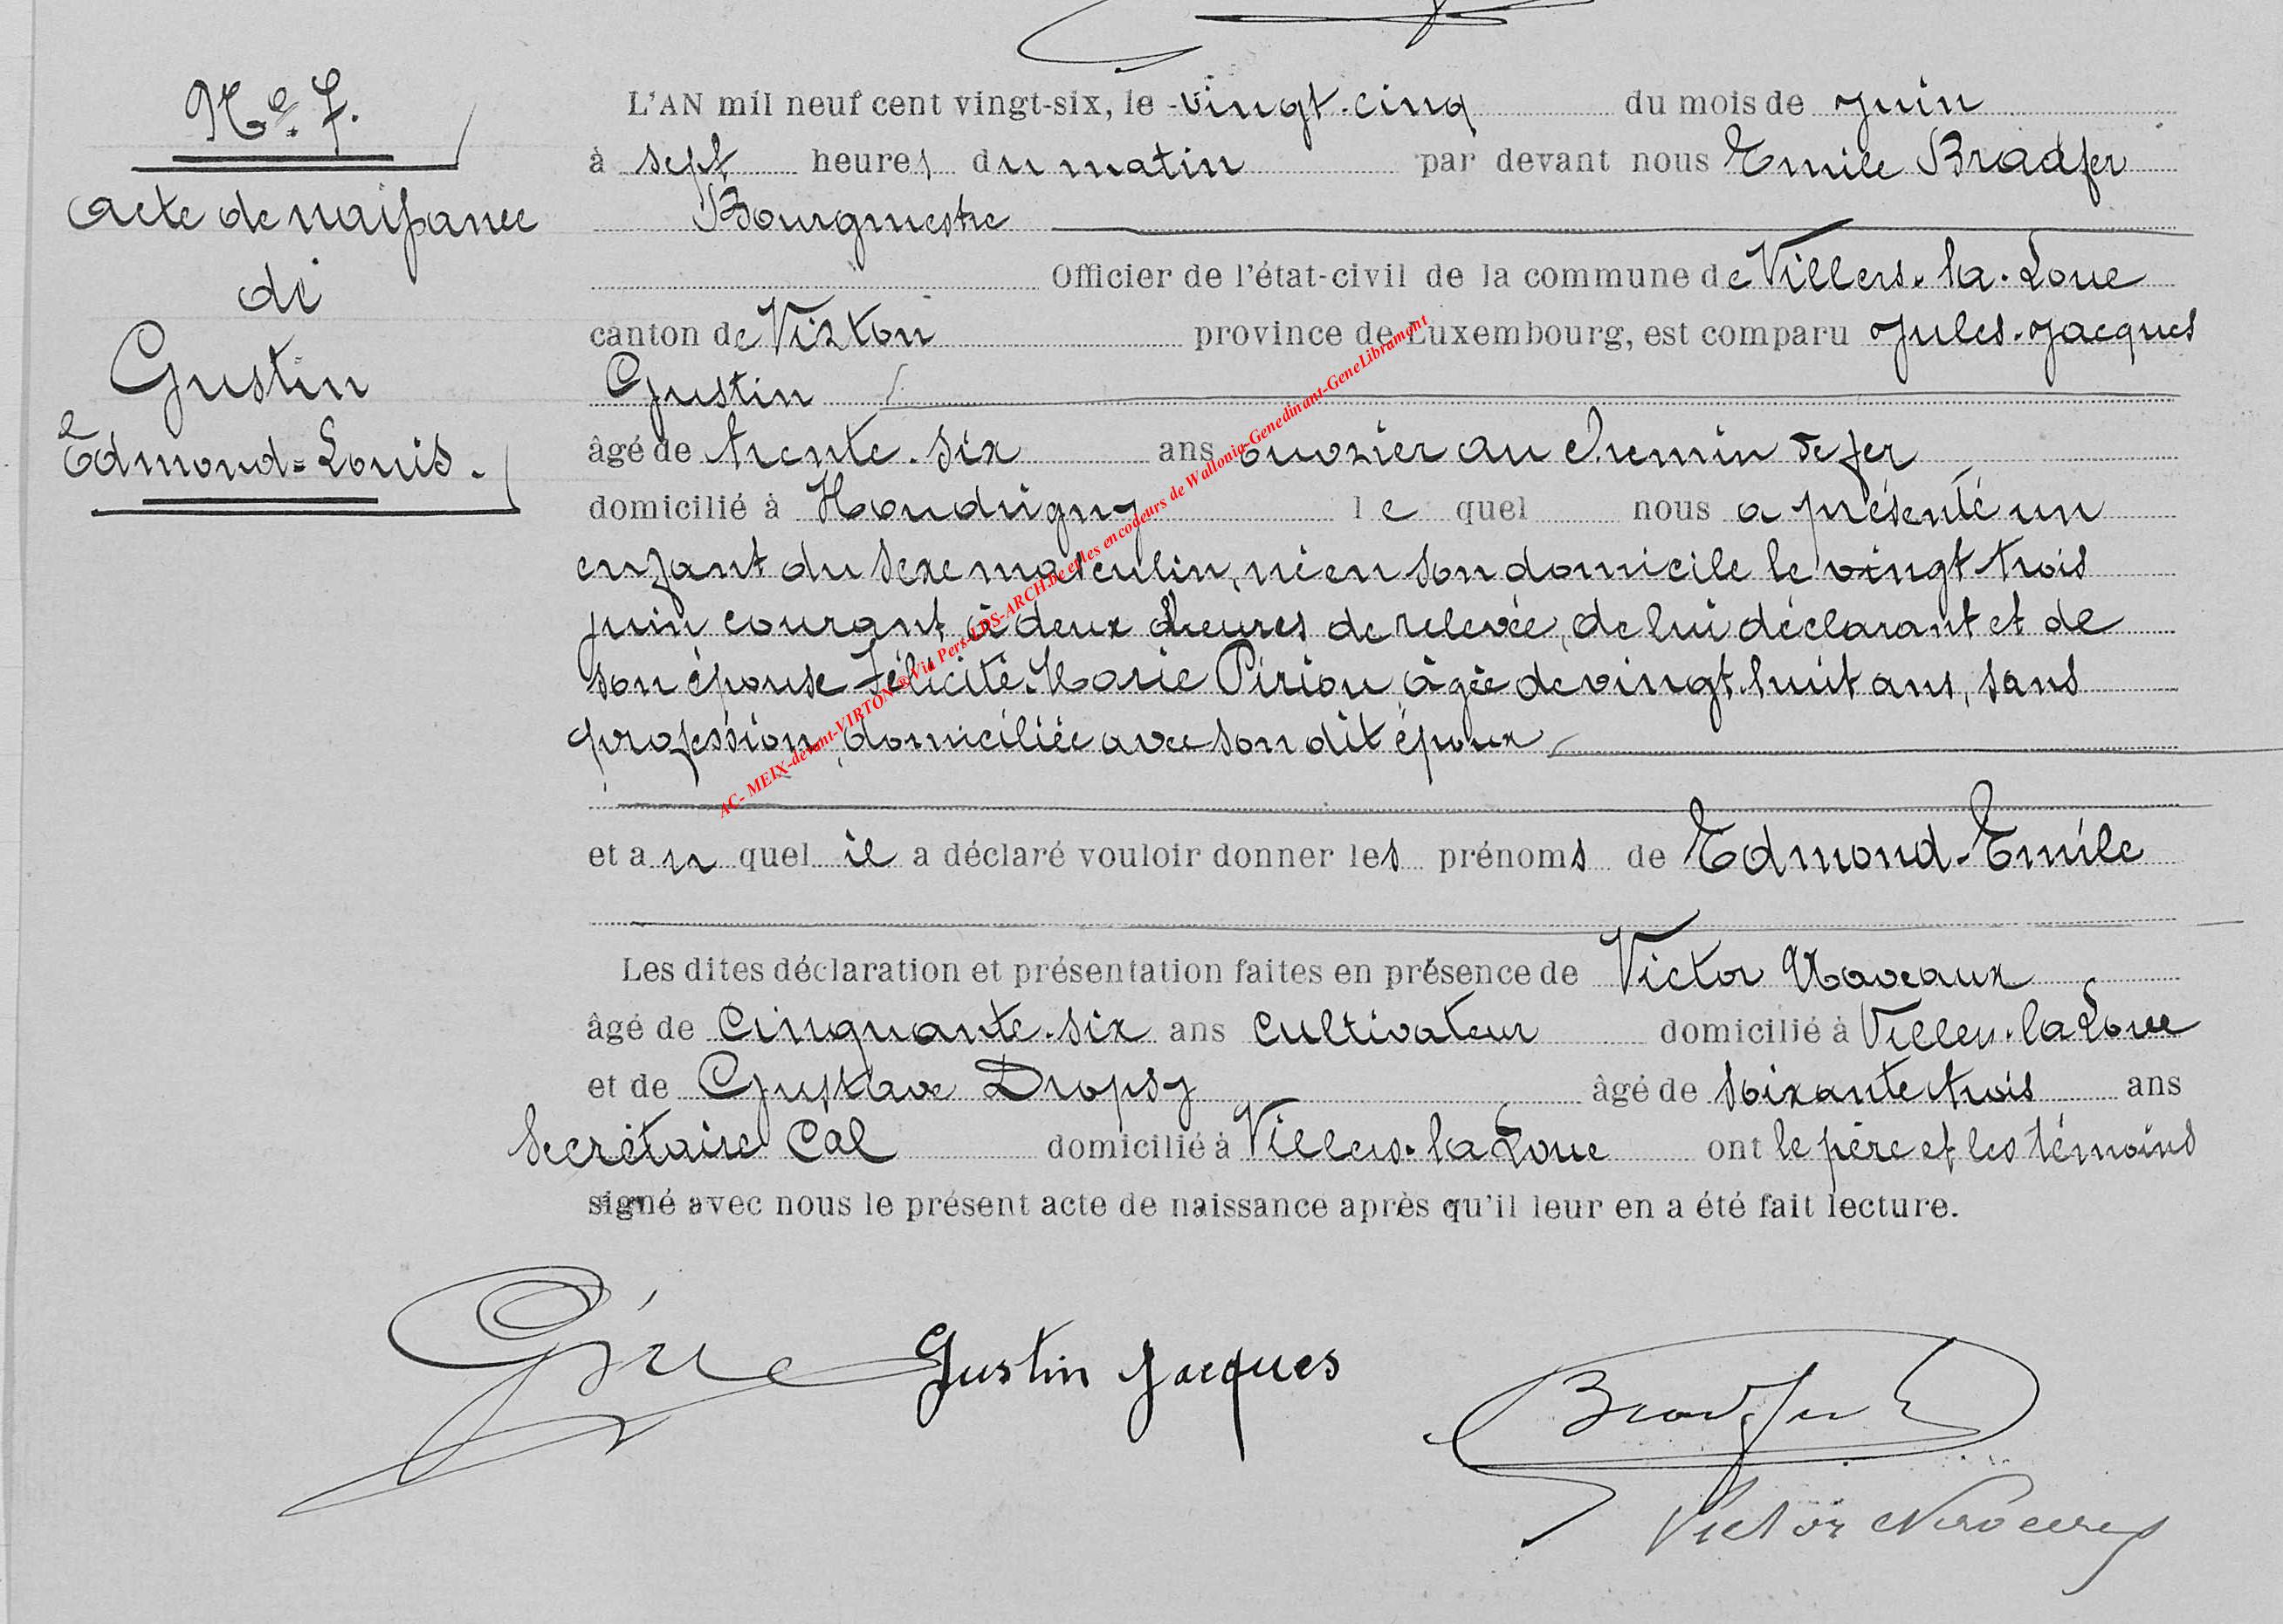 Nº. 7.
acte de naissance
de
Gustin
Edmond-Louis.
L'AN mil neuf cent vingt-six, le vingt-cinq du mois de juin
à sept heures du matin par devant nous Emile Bradfer
Bourgmestre
Officier de l'état-civil de la commune de Villers-la-Loue
canton de Virton province de Luxembourg, est comparu Jules-Jacques
Gustin
âgé de trente-six ans ouvrier au chemin de fer
domicilié à Houdrigny le quel nous a présenté un
enfant du sexe masculin, né en son domicile le vingt-trois
juin courant à deux heures de relevée, de lui déclarant et de
son épouse Félicité-Marie Pirion, âgée de vingt-huit ans, sans
profession, domiciliée avec son dit époux
et au quel il a déclaré vouloir donner les prénoms de Edmond-Emile
Les dites déclaration et présentation faites en présence de Victor Naveaux
âgé de cinquante-six ans cultivateur domicilié à Villers-la-Loue
et de Gustave Dropsy âgé de soixante trois ans
secrétaire cal domicilié à Villers-la-Loue ont le père et les témoins
signé avec nous le présent acte de naissance après qu'il leur en a été fait lecture.
Gustin Jacques
Bradfer E
Victor Naveaux
AC- MEIX-devant-VIRTON ® Via Pers-LDS-ARCH.be et les encodeurs de Wallonia-Genedinant-GeneLibramont